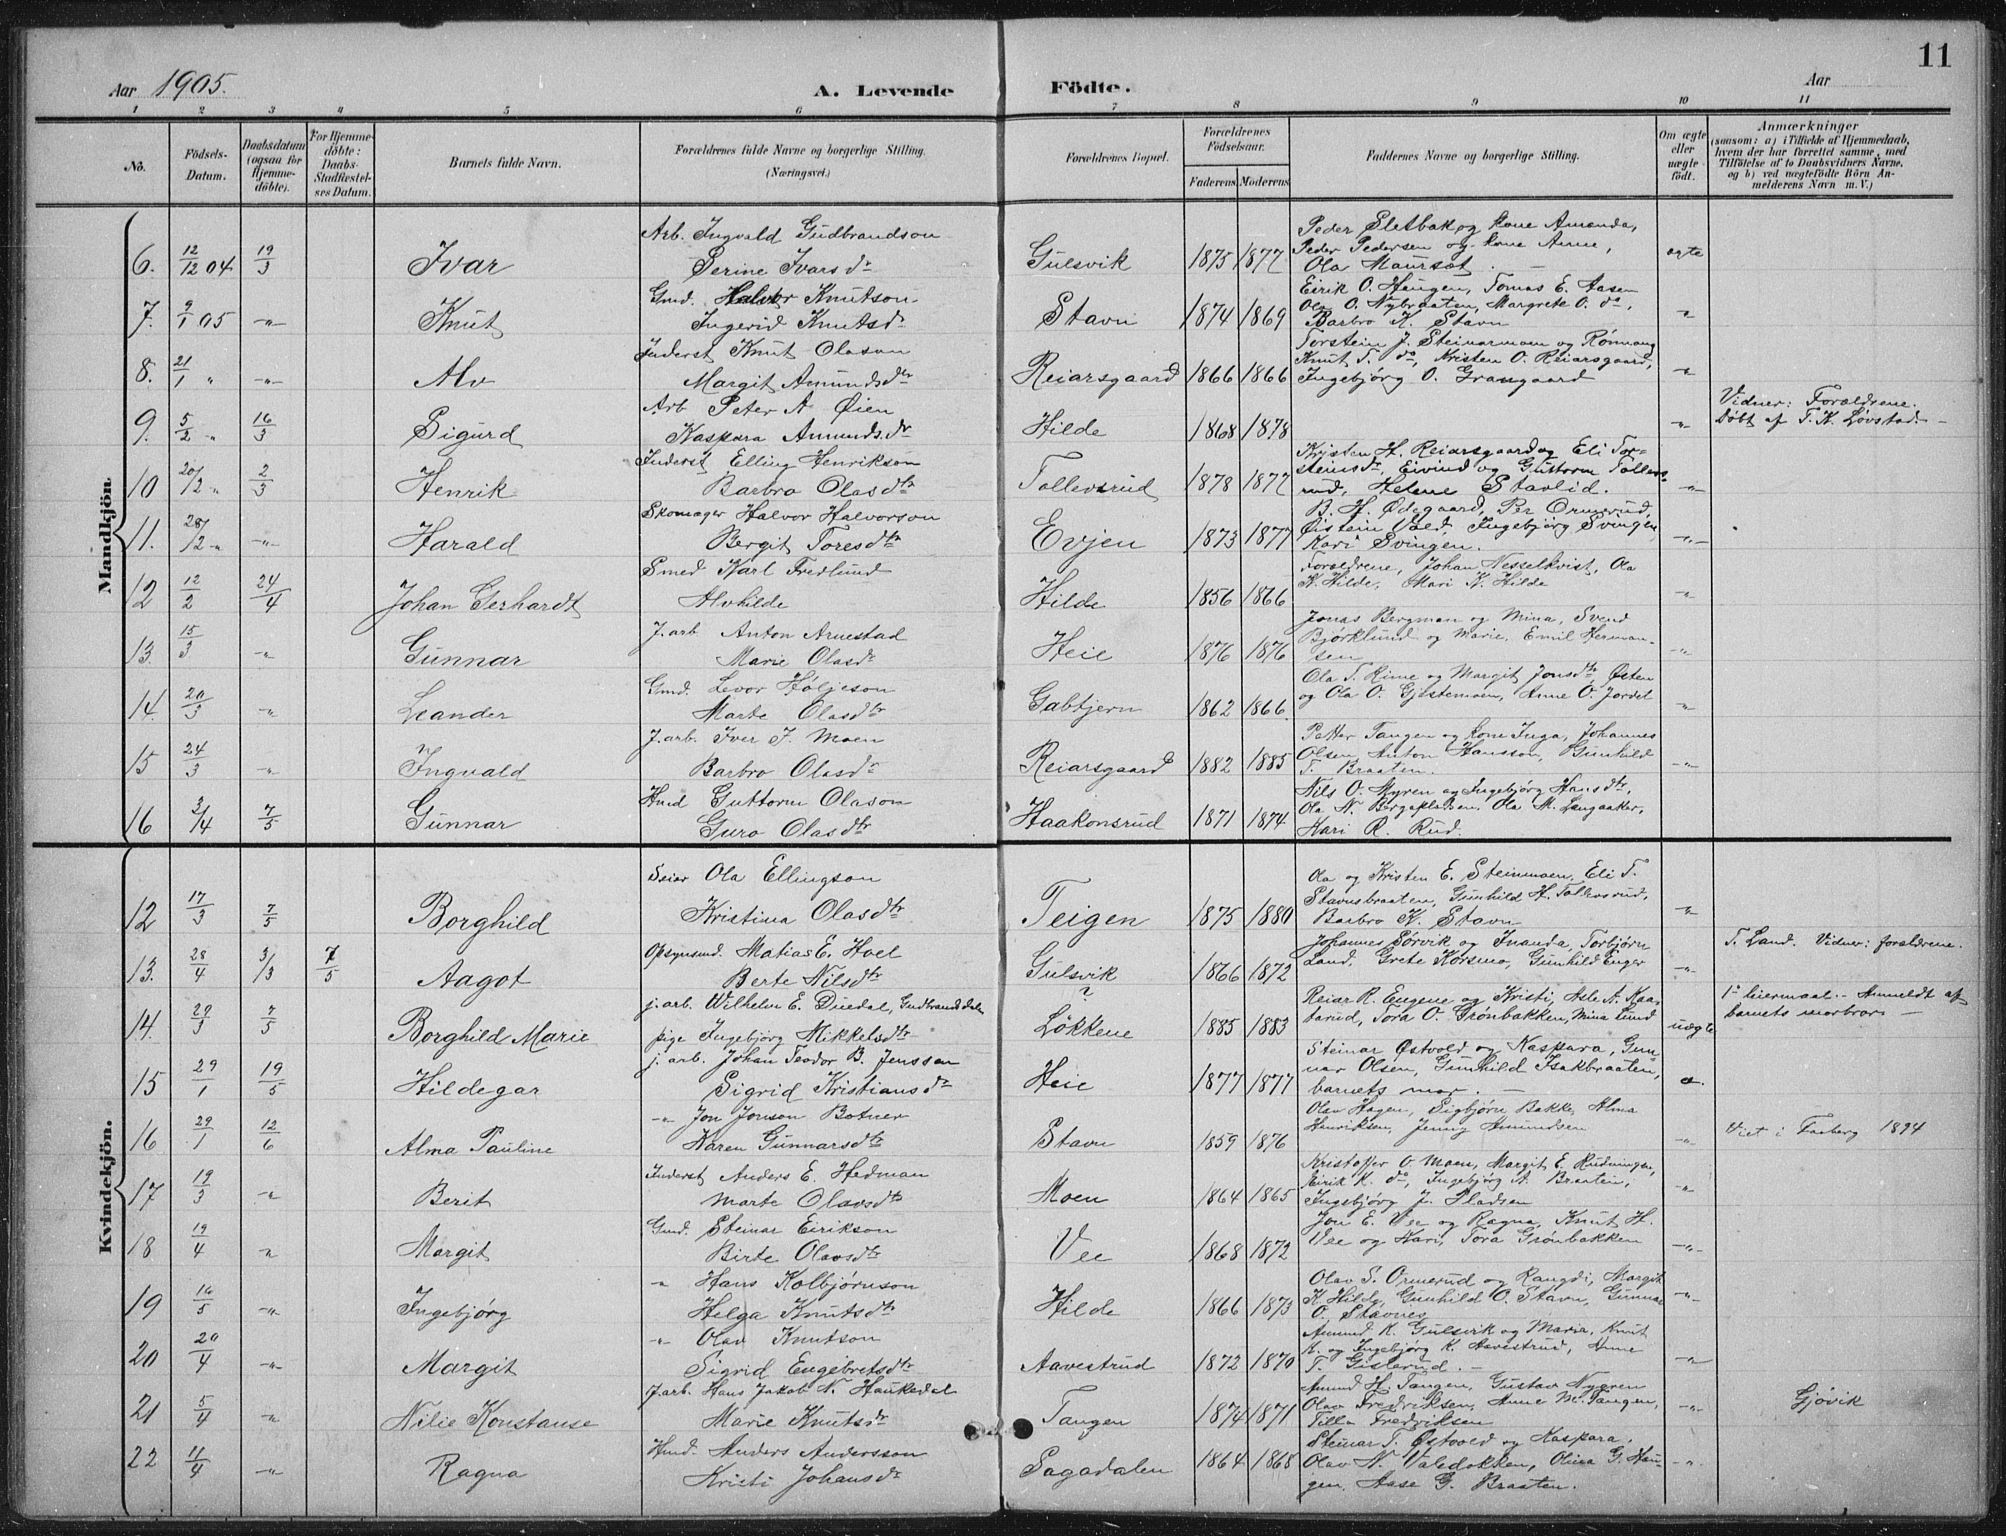 11
Aar 1905.
A. Levende Födte.
Aar
1 2 3 4 5 6 7 8 9 10 11
No.
Födsels-Datum.
Daabsdatum (ogsaa for Hjemme-döbte).
For Hjemme-döbte: Daabs-Stadfæstel-ses Datum.
Barnets fulde Navn.
Forældrenes fulde Navne og borgerlige Stilling.
(Næringsvei.)
Forældrenes Bopæl.
Forældrenes Födselsaar.
Faderens. Moderens.
Faddernes Navne og borgerlige Stilling.
Om ægte eller uægte födt.
Anmærkninger
(saasom: a) i Tilfælde af Hjemmedaab, hvem der har forrettet samme, med Tilföielse af to Daabsvidners Navne, og b) ved uægtefödte Börn An-melderens Navn m. V.)
Mandkjön.
6. 12/12 04 19/3 Ivar
Arb. Ingvald Gudbrandson
Serine Ivarsdr
Gulsvik 1875 1877
Peder Sletbak og kone Amanda,
Peder Pedersen og kone Anne,
Ola Maursæt. —
ægte
7. 9/1 05 -"- Knut
Gmd. Halvor Knutson
Ingerid Knutsdr
Stavn 1874 1869
Eirik O. Haugen, Tomas E. Aasen
Ola O. Nybraaten, Margrete O. do,
Barbro K. Stavn
"
8. 21/1 " -"- Alv
Inderst Knut Olason
Margit Amundsdtr
Reiarsgaard 1866 1866
Torstein J. Steinarmoen og Rønnaug
Knut T. do, Kristen O. Reiarsgaard,
Ingebjörg O. Grangaard
"
9. 5/2 " 16/3 Sigurd
Arb Peter A Øien
Kaspara Amundsdr
Hilde 1868 1878
"
Vidner: Forældrene.
Døbt af T. K. Løvstad. —
10 20/2 " 2/3 Henrik
Inderst Elling Henrikson
Barbro Olasdtr
Tollevsrud 1878 1877
Kristen H. Reiarsgaard og Eli Tor-
steinsdr, Eivind og Guttorm Tollevs-
rud, Helene Stavlid.
-"-
11. 28/2 " -"- Harald
Skomager Halvor Halvorson
Bergit Toresdtr
Evjen 1873 1877
B. H. Ødegaard, Per Ormerud,
Øistein Vold, Ingebjörg Svingen,
Kari Svingen.
-"-
12 12/2 24/4 Johan Gerhardt
Smed Karl Fredlund
Alvhilde
Hilde 1856 1866
Forældrene, Johan Nesselkvist, Ola
K. Hilde, Mari K. Hilde
"
13. 15/3 " Gunnar
J. arb Anton Arnestad
Marie Olasdr
Heie 1876 1876
Jonas Bergman og Mina, Svend
Bjørklund og Marie, Emil Herman-
sen
-"-
14. 20/3 " Leander
Gmd. Levor Høljeson
Marte Olasdtr
Gabtjern 1862 1866.
Ola T. Rime og Margit Jonsdtr, Østen
og Ola O. Gjestemoen, Anne O. Jordet
"
15 24/3 " Ingvald
J. arb. Iver J. Moen
Barbro Olasdr
Reiarsgaard 1882 1885
Petter Tangen og kone Inga, Johannes
Olsen, Anton Hansson, Gunhild
T. Braaten.
-"-
16 3/4 7/5 Gunnar
Hmd Guttorm Olason
Guro Olasdtr
Haakonsrud 1871 1874
Nils O. Myren og Ingebjörg Hansdtr,
Ola N. Bergaplassen, Ola M. Langaaker,
Hari R. Rud.
Kvindekjön.
12 17/3 7/5 Borghild
Ola Ellingson
Kristina Olasdtr
Teigen 1875 1880
Ola og Kristen E. Steinmoen, Eli T.
Stavnsbraaten, Gunhild H. Tollevsrud,
Barbro K. Stavn
"
13. 28/4 3/13 7/5 Aagot
Opsynsmd. Matias E. Hoel
Berte Nilsdtr
Gulsvik 1866 1872
Johannes Sørvik og Inanda, Torbjørn
Land, Grete Korsmo, Gunhild Enger
-"-
T. Land. Vidner: forældrene.
14. 29/3 7/5 Borghild Marie
j. arb. Wilhelm E. Duedal, Gudbrandsdalen
pige Ingebjörg Mikkelsdtr
?
Løkkene 1885 1883
Reiar R. Eugene og Kristi, Asle A. Kaa-
tarud, Tora O. Grønbakken, Mina Lund
uægte
1ste leiermaal. — Anmeldt af
barnets morbror —
15 29/1 19/5 Hildegar
j. arb. Johan Teodor B. Jenssen
Sigrid Kristiansdtr
Heie 1877 1877
Steinar Østvold og Kaspara, Gun-
nar Olsen, Gunhild Isakbraaten,
barnets mor. —
æ.
16 29/1 12/6 Alma Pauline
-"- Jon Jonson Botner
Karen Gunnarsdtr
Stavn 1859 1876
Olav Hagen, Sigbjørn Bakke, Alma
Henriksen, Jenny Amundsen
"
Viet i Faaberg 1894
17 19/3 " Berit
Inderst Anders E. Hedman
Marte Olavsdtr
Moen 1864 1865
Kristoffer O. Moen, Margit E. Rudningen,
Eirik K. do, Ingebjörg A. Braaten,
Ingebjörg J. Pladsen
"
18 19/4 " Margit
Gmd. Steinar Eirikson
Birte Olavsdtr
Vee 1868 1872
Jon E. Vee og Ragna, Knut H.
Vee og Hari, Tora Grønbakken
-"-
19 16/5 -"- Ingebjørg
" Hans Kolbjørnson
Helga Knutsdtr
Hilde 1866 1873
Olav S. Ormerud og Rangdi, Margit
K Hilde, Gunhild O. Stavn, Gunnar
O. Stavnes
-"-
20 20/4 -"- Margit
" Olav Knutson
Sigrid Engebretsdtr
Aavestrud 1872 1870
Amund K. Gulsvik og Maria, Knut
K. og Ingebjørg K. Aavestrud, Anne
T. Gislerud. —
"
21 5/4 " Nilie Konstanse
J. arb. Hans Jakob N. Haukedal
Marie Knutsdr
Tangen 1874 1871
Amund H. Tangen, Gustav Nygren
Olav Fredriksen, Anne M. Tangen,
Tilla Fredriksen
-"-
Gjøvik
22 11/4 -"- Ragna
Hmd. Anders Andersson
Kristi Johansdr
Sagadalen 1864 1868
Steinar T. Østvold og Kaspara,
Olav N. Valedokken, Olina G. Hau-
gen, Aase G. Braaten.
-"-